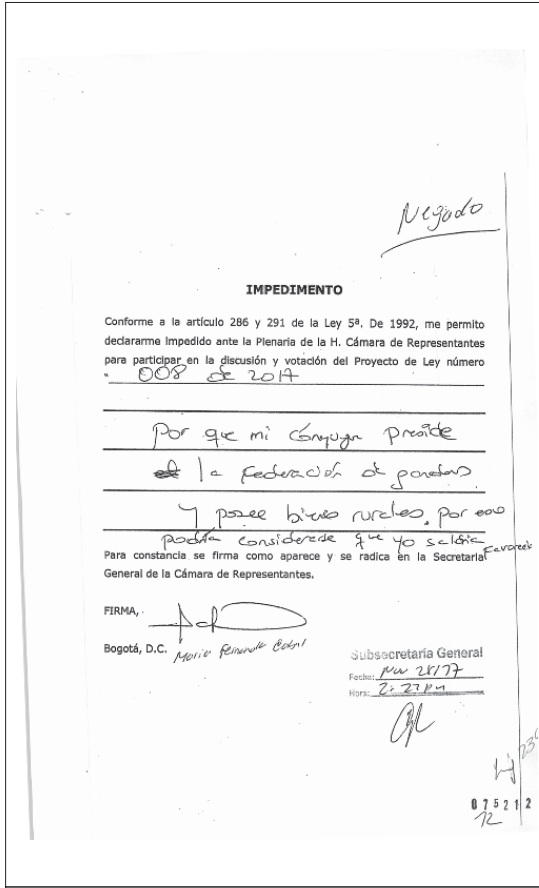 Negado
IMPEDIMENTO
Conforme a la artículo 286 y 291 de la Ley 5ª. De 1992, me permito
declararme impedido ante la Plenaria de la H. Cámara de Representantes
para participar en la discusión y votación del Proyecto de Ley número
008 de 2017
Por que mi cónyuge preside
la federación de ganaderos
Y posee bienes rurales. Por eso
podría considerarse que yo saldría
Para constancia se firma como aparece y se radica en la Secretaria
General de la Cámara de Representantes.
FIRMA,
Bogotá, D.C. Maria Fernanda Cabal
Subsecretaría General
Fecha: Nov 28/17
Hora: 2:27 pm
075212
12